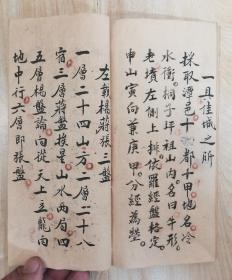 一具佳城之所
採取潭邑十都十甲地名冷
水衝桐子坪祖山內名曰牛形
老墳左側上排依羅經盤格定
申山寅向兼庚甲分經為塋
左郭楊蔣張三盤
一層二十四山方二層二十八
宿三層蔣盤挨星山水兩局四
五層楊盤論向從天上立龍向
地中行六層即張盤